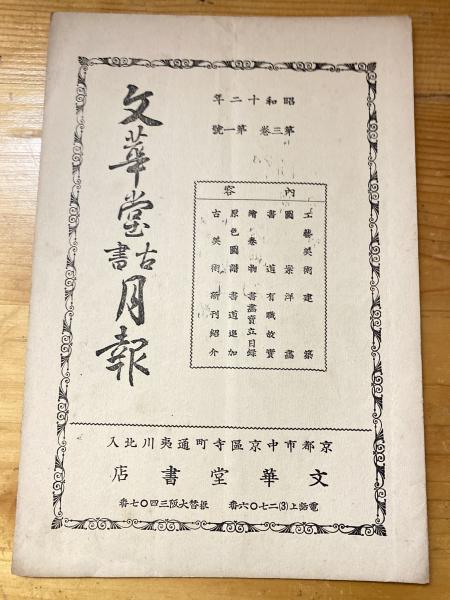 昭和十二年
第三卷 第一號
內容
工藝美術建築
圖案洋畵
書道有職故實
繪卷物書畵賣立目錄
原色圖譜書道追加
古美術新刊紹介
文華堂古書月報
京都市中京區寺町通夷川北入
文華堂書店
電話上(3)二七〇六番 振替大阪三四〇七番